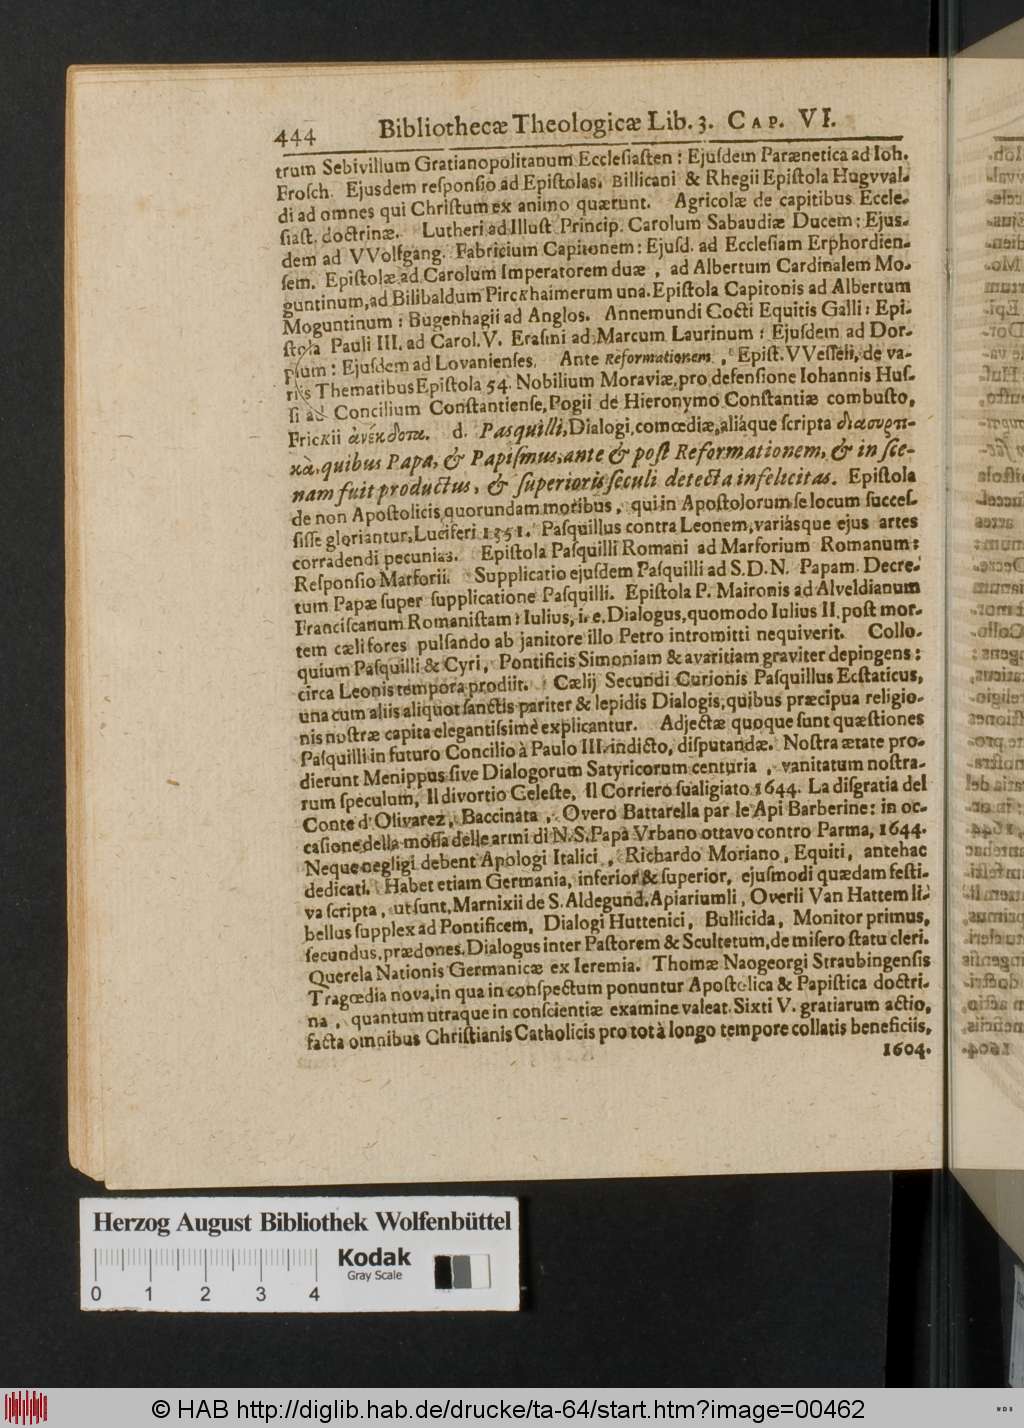 444 Bibliothecæ Theologicæ Lib. 3. CAP. VI.
trum Sebivillum Gratianopolitanum Ecclesiasten: Ejusdem Parænetica ad Ioh.
Frosch. Ejusdem responsio ad Epistolas. Billicani & Rhegii Epistola Hugvval-
di ad omnes qui Christum ex animo quærunt. Agricolæ de capitibus Eccle-
siast. doctrinæ. Lutheri ad Illust Princip. Carolum Sabaudiæ Ducem: Ejus-
dem ad VVolfgang. Fabricium Capitonem: Ejusd. ad Ecclesiam Erphordien-
sem. Epistolæ ad Carolum Imperatorem duæ, ad Albertum Cardinalem Mo-
guntinum, ad Bilibaldum Pirckhaimerum una. Epistola Capitonis ad Albertum
Moguntinum: Bugenhagii ad Anglos. Annemundi Cocti Equitis Galli: Epi-
stola Pauli III. ad Carol. V. Erasmi ad Marcum Laurinum: Ejusdem ad Dor-
pium: Ejusdem ad Lovanienses. Ante Reformationem, Epist. VVesseli, de va-
riis Thematibus Epistola 54. Nobilium Moraviæ, pro defensione Iohannis Hus-
si ad Concilium Constantiense, Pogii de Hieronymo Constantiæ combusto,
Frickii ἀνέκδοτα. d. Pasquilli, Dialogi, comœdiæ, aliàque scripta διασυρτι-
κὰ, quibus Papa, & Papismus, ante & post Reformationem, & in sce-
nam fuit productus, & superioris seculi detecta infelicitas. Epistola
de non Apostolicis quorundam moribus, qui in Apostolorum se locum succes-
sisse gloriantur, Luciferi 1351. Pasquillus contra Leonem, variásque ejus artes
corradendi pecunias. Epistola Pasquilli Romani ad Marforium Romanum:
Responsio Marforii. Supplicatio ejusdem Pasquilli ad S.D.N. Papam. Decre-
tum Papæ super supplicatione Pasquilli. Epistola P. Maironis ad Alveldianum
Franciscanum Romanistam: Iulius, i. e. Dialogus, quomodo Iulius II. post mor-
tem cæli fores pulsando ab janitore illo Petro intromitti nequiverit. Collo-
quium Pasquilli & Cyri, Pontificis Simoniam & avaritiam graviter depingens:
circa Leonis tempora prodiit. Cælij Secundi Curionis Pasquillus Ecstaticus,
una cum aliis aliquot sanctis pariter & lepidis Dialogis, quibus præcipua religio-
nis nostræ capita elegantissimè explicantur. Adjectæ quoque sunt quæstiones
Pasquilli in futuro Concilio à Paulo III. indicto, disputandæ. Nostra ætate pro-
dierunt Menippus sive Dialogorum Satyricorum centuria, vanitatum nostra-
rum speculum, Il divortio Celeste, Il Corriero sualigiato 1644. La disgratia del
Conte d'Olivarez, Baccinata, Overo Battarella par le Api Barberine: in oc-
casione della mossa delle armi di N.S. Papa Vrbano ottavo contro Parma, 1644.
Neque negligi debent Apologi Italici, Richardo Moriano, Equiti, antehac
dedicati. Habet etiam Germania, inferior & superior, ejusmodi quædam festi-
va scripta, ut sunt, Marnixii de S. Aldegund. Apiariumli, Overii Van Hattem li-
bellus supplex ad Pontificem, Dialogi Huttenici, Bullicida, Monitor primus,
secundus, prædones. Dialogus inter Pastorem & Scultetum, de misero statu cleri.
Querela Nationis Germanicæ ex Ieremia. Thomæ Naogeorgi Straubingensis
Tragœdia nova, in qua in conspectum ponuntur Apostolica & Papistica doctri-
na, quantum utraque in conscientiæ examine valeat. Sixti V. gratiarum actio,
facta omnibus Christianis Catholicis pro tot à longo tempore collatis beneficiis,
1604.
Herzog August Bibliothek Wolfenbüttel
Kodak
Gray Scale
0 1 2 3 4
© HAB http://diglib.hab.de/drucke/ta-64/start.htm?image=00462